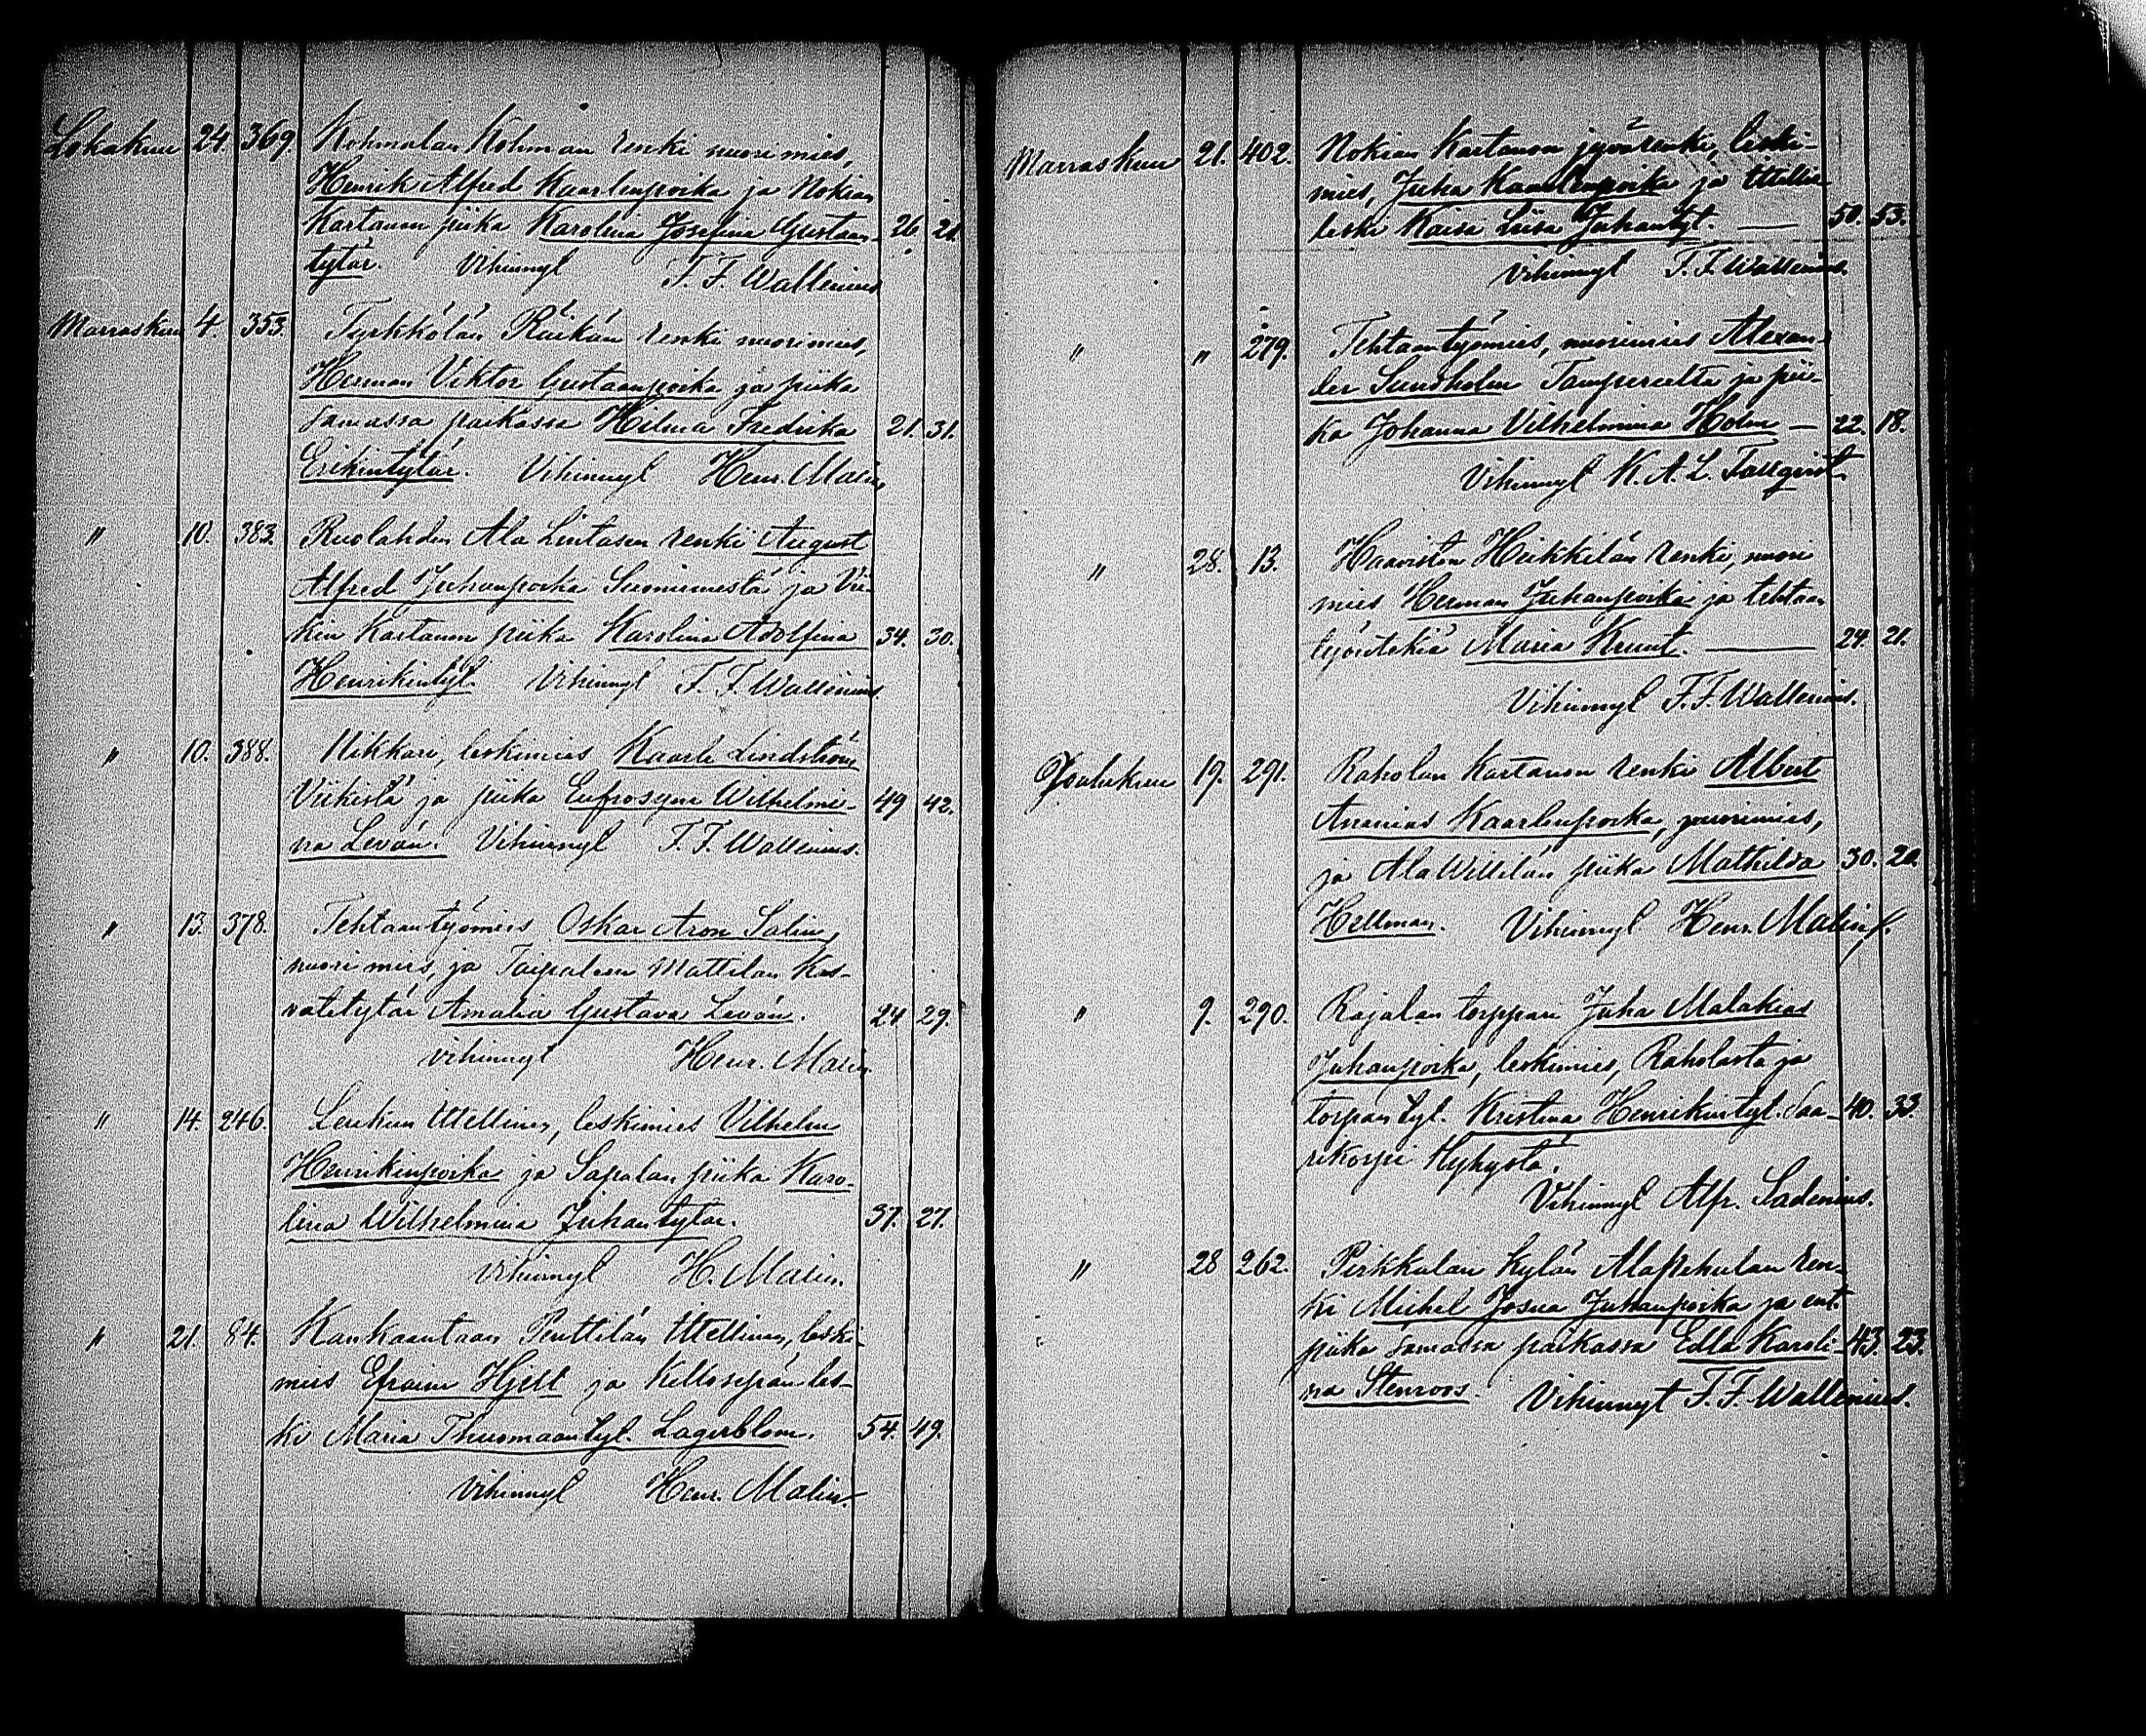 Lokakuu 24. 369. Kohmalan Kohman renki nuori mies,
Henrik Alfred Kaarlenpoika ja Nokian
Kartanon piika Karolina Josefina Gustaan- 26. 21.
tytär. Vihinnyt F. F. Wallenius
Marraskuu 4. 353. Tyrkkölän Räikän renki nuori mies,
Herman Viktor Gustaanpoika ja piika
samassa paikassa Hilma Fredrika 21. 31.
Erikintytär. Vihinnyt Henr. Malin
" 10. 383. Ruolahden Ala Lintusen renki August
Alfred Juhanpoika Suoniemestä ja Vii-
kin Kartanon piika Karolina Adolfina 34. 30.
Henrikintyt. Vihinnyt F. F. Wallenius
" 10. 388. Nikkari, leskimies Kaarle Lindström
Viikistä ja piika Eufrosyne Wilhelmi- 49 42.
na Levón. Vihinnyt F. F. Wallenius.
" 13. 378. Tehtaantyömies Oskar Aron Salin,
nuori mies, ja Taipaleen Mattilan Kas-
vattitytär Amalia Gustava Levón. 24 29.
Vihinnyt Henr. Malin
" 14. 246. Ittellinen, leskimies Vilhelm
Henrikinpoika ja Sapalan piika Karo-
lina Wilhelmina Juhantytär. 37. 27.
Vihinnyt H. Malin.
" 21. 84. Kankaantaan Penttilän Ittellinen, leski-
mies Efraim Hjelt ja les-
ki Maria Thuomaantyt. Lagerblom. 54. 49.
Vihinnyt Henr. Malin.
Marraskuu 21. 402. Nokian Kartanon jyvärenki, leski-
mies, Juha Kaarlenpoika ja Ittellis-
leski Kaisa Liisa Juhantyt. — 50. 53.
Vihinnyt F. F. Wallenius.
" " 279. Tehtaantyömies, nuorimies Alexan-
der Sundholm Tampereelta ja pii-
ka Johanna Vilhelmina Holm — 22. 18.
Vihinnyt K. A. L. Tallqvist.
" 28. 13. Haaviston Heikkilän renki, nuori
mies Herman Juhanpoika ja tehtaan
työntekiä Maria Krunt. — 24. 21.
Vihinnyt F. F. Wallenius.
Joulukuu 19. 291. Raholan Kartanon renki Albert
Ananias Kaarlenpoika, nuorimies,
ja Ala Willilän piika Mathilda 30. 20.
Hellman. Vihinnyt Henr. Malin.
" 9. 290. Rajalan torppari Juha Malakias
Juhanpoika, leskimies, Raholasta ja
torpan tyt. Kristina Henrikintyt. Saa- 40. 33.
rikorpi Hyhystä.
Vihinnyt Alfr. Sadenius.
" 28 262. Pirkkalan Kylän Alapehulan ren-
ki Michel Josua Juhanpoika ja ent.
piika samassa paikassa Edla Karoli- 43. 23.
na Stenroos. Vihinnyt F. F. Wallenius.